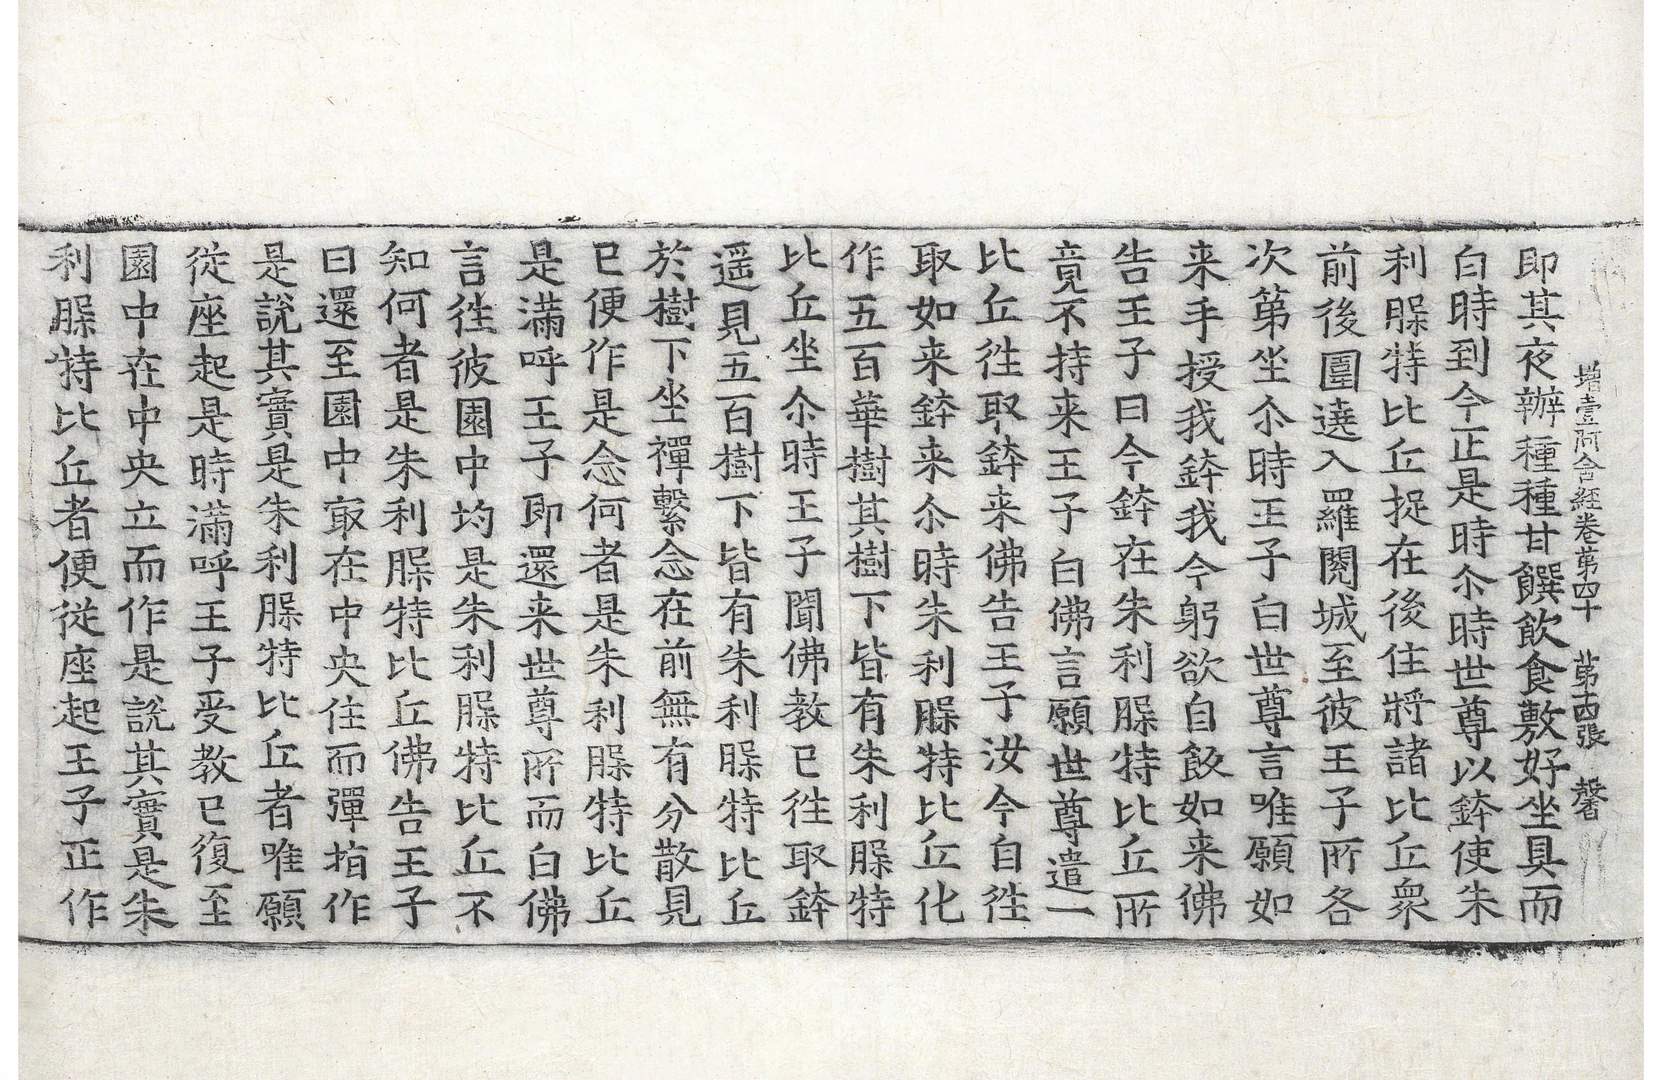 增壹阿含經卷第四十 第十四張 馨
即其夜辦種種甘饌飲食敷好坐具而
白時到今正是時尒時世尊以鉢使朱
利䐗特比丘捉在後住將諸比丘衆
前後圍遶入羅閱城至彼王子所各
次第坐尒時王子白世尊言唯願如
来手授我鉢我今躬欲自飯如来佛
告王子曰今鉢在朱利䐗特比丘所
竟不持来王子白佛言願世尊遣一
比丘徃取鉢来佛告王子汝今自徃
取如来鉢来尒時朱利䐗特比丘化
作五百華樹其樹下皆有朱利䐗特
比丘坐尒時王子聞佛教已徃取鉢
遥見五百樹下皆有朱利䐗特比丘
於樹下坐禪繫念在前無有分散見
已便作是念何者是朱利䐗特比丘
是滿呼王子即還来世尊所而白佛
言徃彼園中均是朱利䐗特比丘不
知何者是朱利䐗特比丘佛告王子
曰還至園中㝡在中央住而彈指作
是說其實是朱利䐗特比丘者唯願
従座起是時滿呼王子受教已復至
園中在中央立而作是說其實是朱
利䐗特比丘者便從座起王子正作